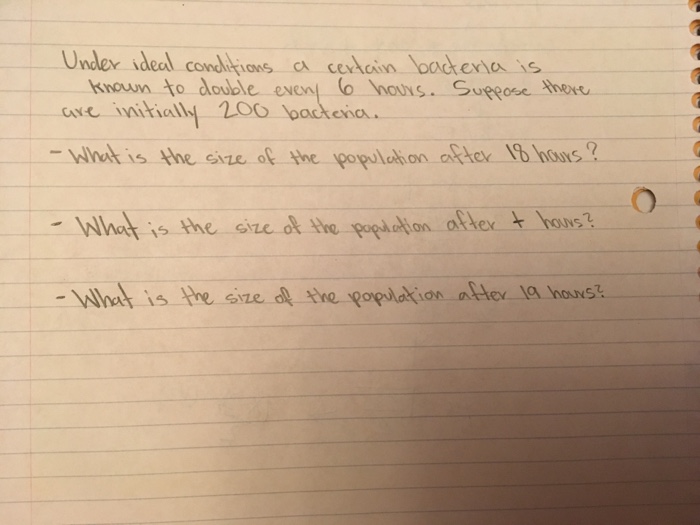 Under ideal conditions a certain bacteria is
known to double every 6 hours. Suppose there
are initially 200 bacteria.
- What is the size of the population after 18 hours?
- What is the size of the population after t hours?
- What is the size of the population after 19 hours?